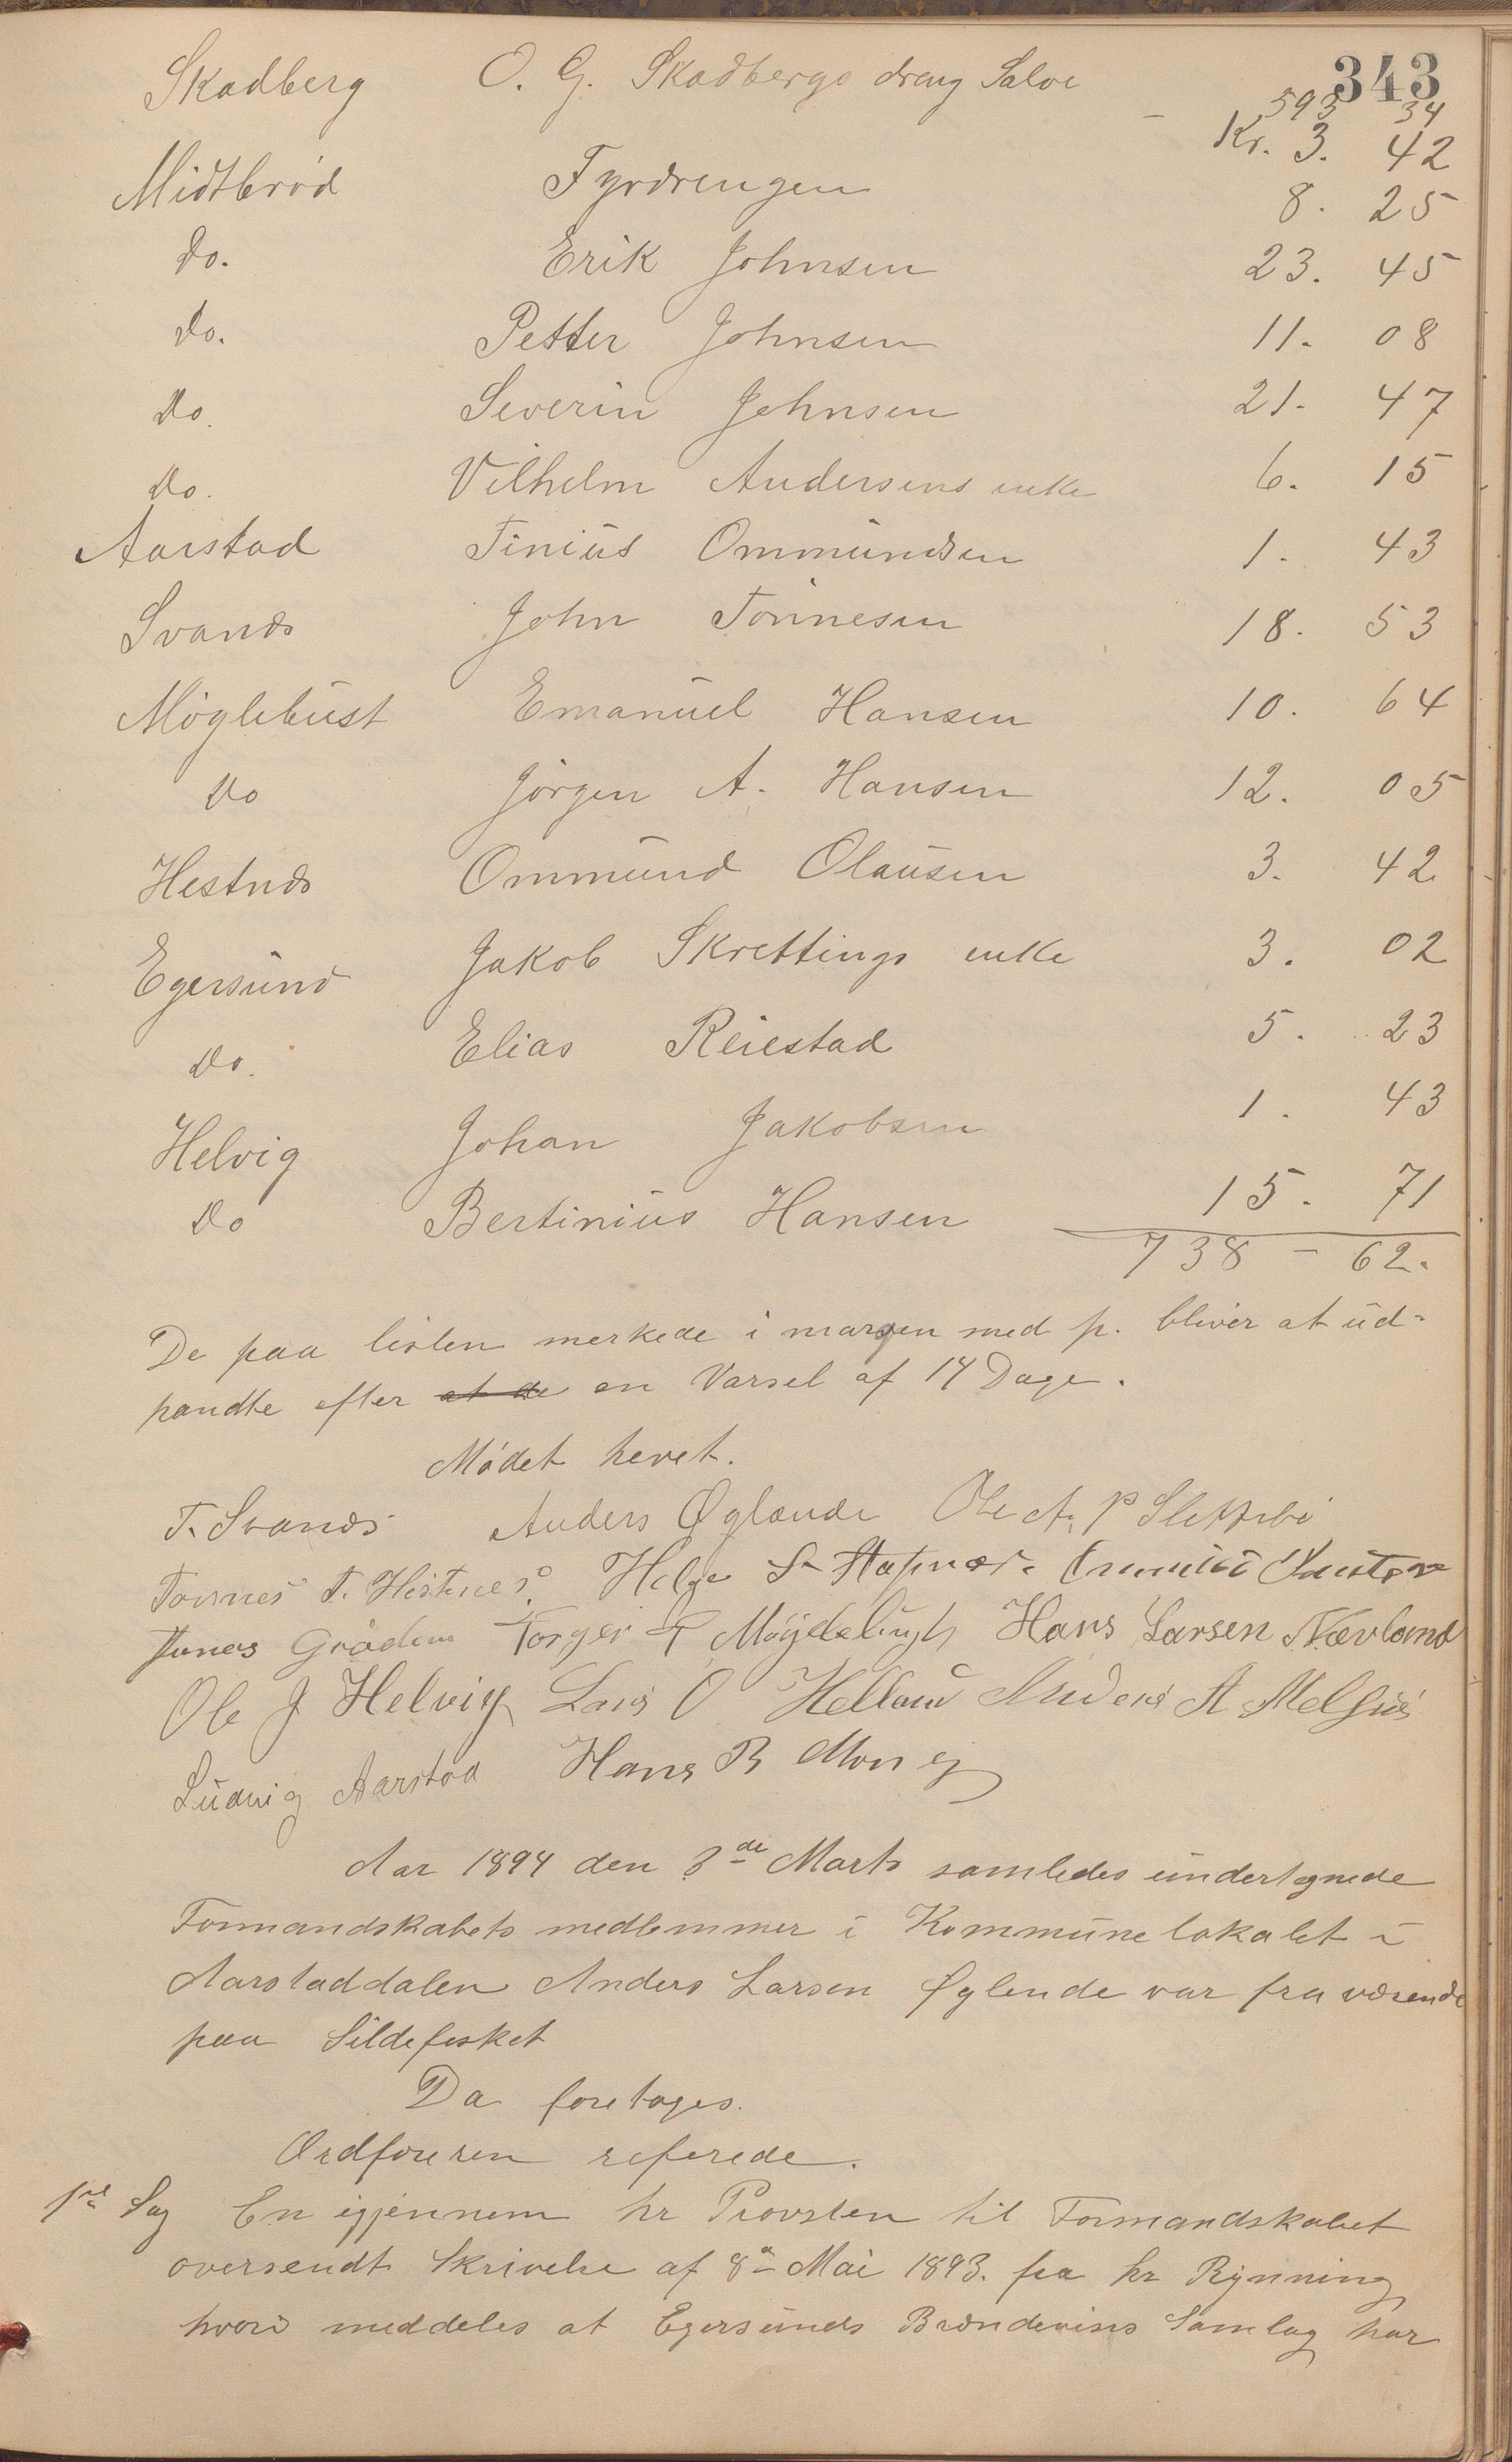 343
593 34
Skadberg O. G. Skadbergs dreng Salve Kr. 3. 42
Midtbrød Fyrdrengen 8. 25
do. Erik Johnsen 23. 45
do. Petter Johnsen 11. 08
do. Severin Johnsen 21. 47
do. Vilhelm Andersens enke 6. 15
Aarstad Tinius Ommundsen 1. 43
Svands John Tønnesen 18. 53
Møglebust Emanuel Hansen 10. 64
do Jørgen A. Hansen 12. 05
Hestnds Ommund Olausen 3. 42
Egersund Jakob Skrettings enke 3. 02
do. Elias Reiestad 5. 23
Helvig Johan Jakobsen 1. 43
do Bertinius Hansen 15. 71
738 - 62.
De paa listen merkede i margen med p. bliver at ud-
pandte efter at de en Varsel af 14 Dage.
Mødet hevet.
T. Svands Anders Øglænde Ole A. P Slettebø
Tønnes T. Hestnes Helge S Stapnæs
Jonas Grødem Torger Hans Larsen Nævland
Ole J Helvig Lars O Helland Anders A Melhus
Ludvig Aarstad Hans B Mong
Aar 1894 den 3de Marts samledes undertegnede
Formandskabets medlemmer i Kommunelokalet i
Aarstaddalen Anders Larsen Øglende var fraværende
paa Sildefisket
Da foretoges.
Ordføreren referede.
1ste Sag En igjennem hr Provsten til Formandskabet
oversendt Skrivelse af 8de Mai 1893. fra hr Rynning
hvori meddeles at Egersunds Brændevins Samlag har